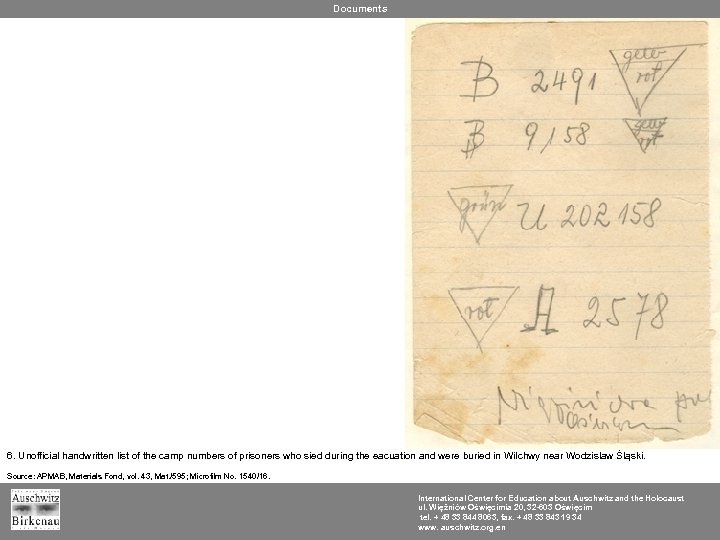 Documents
B 2491 gelb rot
B 9158 gelb rot
grün U 202 158
rot A 2578
6. Unofficial handwritten list of the camp numbers of prisoners who sied during the eacuation and were buried in Wilchwy near Wodzislaw Śląski.
Source: APMAB, Materials Fond, vol. 43, Mat./595; Microfilm No. 1540/16.
Auschwitz
Birkenau
International Center for Education about Auschwitz and the Holocaust
ul. Więźniów Oświęcimia 20, 32-603 Oświęcim
tel. + 48 33 844 8063, fax. + 48 33 843 19 34
www. auschwitz.org.en